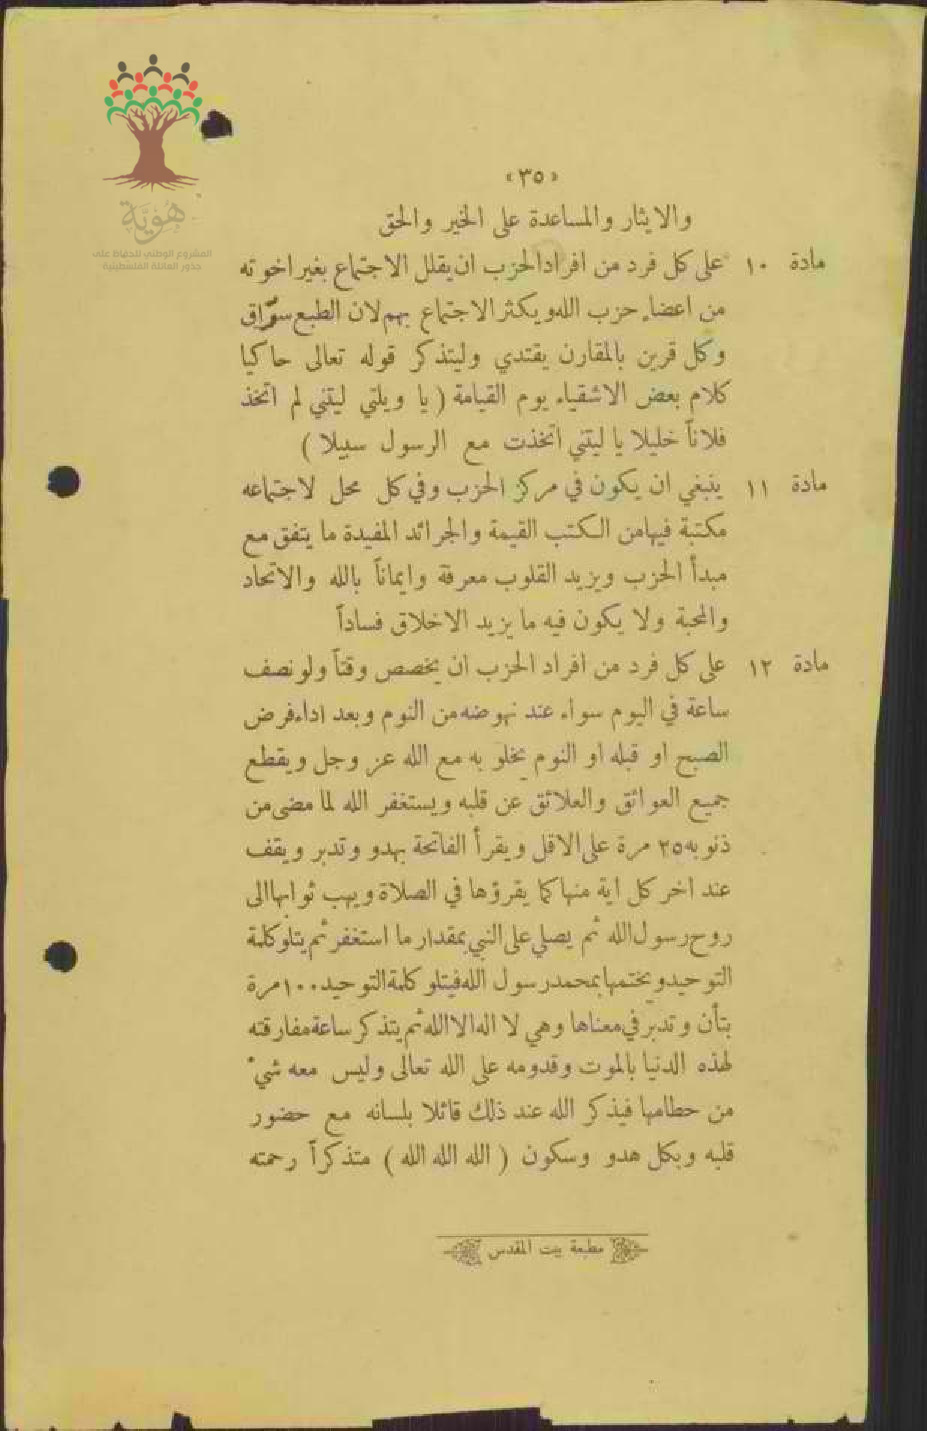 هُوِيَّة
المشروع الوطني للحفاظ على
جذور العائلة الفلسطينية
«٣٥»
والايثار والمساعدة على الخير والحق
مادة ١٠ على كل فرد من افراد الحزب ان يقلل الاجتماع بغير اخوته
من اعضاء حزب الله ويكثر الاجتماع بهم لان الطبع سرّاق
وكل قرين بالمقارن يقتدي وليتذكر قوله تعالى حاكيا
كلام بعض الاشقياء يوم القيامة (يا ويلتي ليتني لم اتخذ
فلاناً خليلا يا ليتني اتخذت مع الرسول سبيلا)
مادة ١١ ينبغي ان يكون في مركز الحزب وفي كل محل لاجتماعه
مكتبة فيها من الكتب القيمة والجرائد المفيدة ما يتفق مع
مبدأ الحزب ويزيد القلوب معرفة وايماناً بالله والاتحاد
والمحبة ولا يكون فيه ما يزيد الاخلاق فساداً
مادة ١٢ على كل فرد من افراد الحزب ان يخصص وقتاً ولو نصف
ساعة في اليوم سواء عند نهوضه من النوم وبعد اداء فرض
الصبح او قبله او النوم يخلو به مع الله عز وجل ويقطع
جميع العوائق والعلائق عن قلبه ويستغفر الله لما مضى من
ذنوبه ٢٥ مرة على الاقل ويقرأ الفاتحة بهدو وتدبر ويقف
عند اخر كل اية منها كما يقرؤها في الصلاة ويهب ثوابها الى
روح رسول الله ثم يصلي على النبي بمقدار ما استغفر ثم يتلو كلمة
التوحيد ويختمها بمحمد رسول الله فيتلو كلمة التوحيد ١٠٠ مرة
بتأن وتدبر في معناها وهي لا اله الا الله ثم يتذكر ساعة مفارقته
لهذه الدنيا بالموت وقدومه على الله تعالى وليس معه شيء
من حطامها فيذكر الله عند ذلك قائلا بلسانه مع حضور
قلبه وبكل هدو وسكون (الله الله الله) متذكراً رحمته
مطبعة بيت المقدس